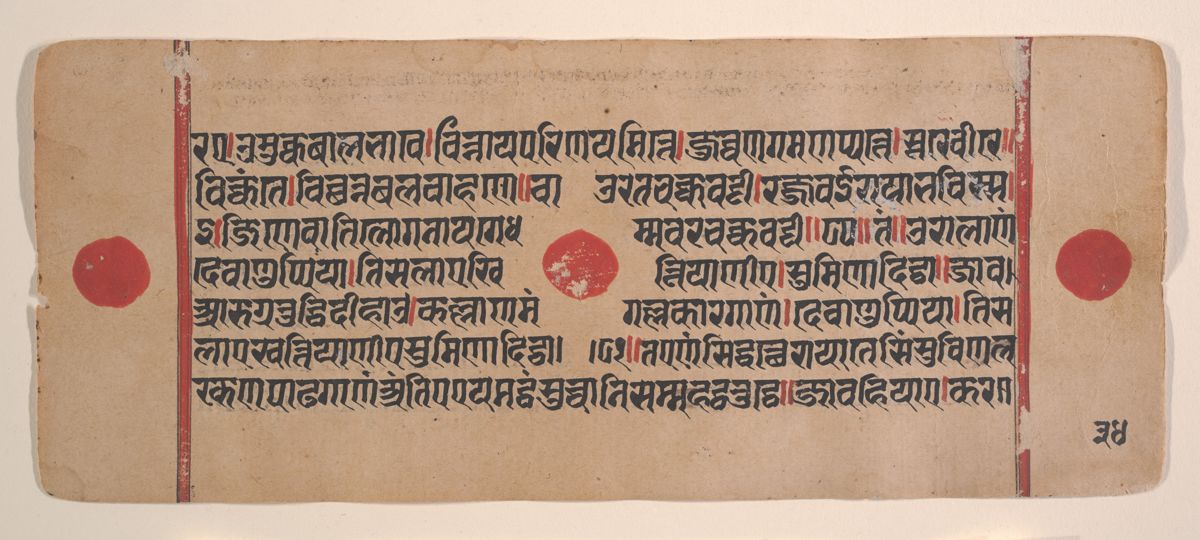 रए।उमुक्कबालभावे।विन्नायपरिणयमित्ते।जुव्वणगमणुप्पत्ते।सूरे वीरे॥
विक्कंते।विच्छिन्नबलवाहणे॥चाउरंतचक्कवट्टी।रज्जवई राया भविस्स।
इ।जिणे वा तिलोगनायगे धम्मवरचक्कवट्टी॥ तं॥उराला णं
देवाणुप्पिया।तिसलाए खत्तियाणीए।सुमिणा दिट्ठा॥जाव।
आरुग्गतुट्ठिदीहाउ।कल्लाणमंगल्लकारगा णं।देवाणुप्पिया।तिस
लाए खत्तियाणीए सुमिणा दिट्ठा। तएणं सिद्धत्थे राया तेसिं सुविणल
रकणपाढगाणं अंतिए एयमट्ठं सुच्चा निसम्म हट्ठतुट्ठे॥जाव हियए।करय
३४